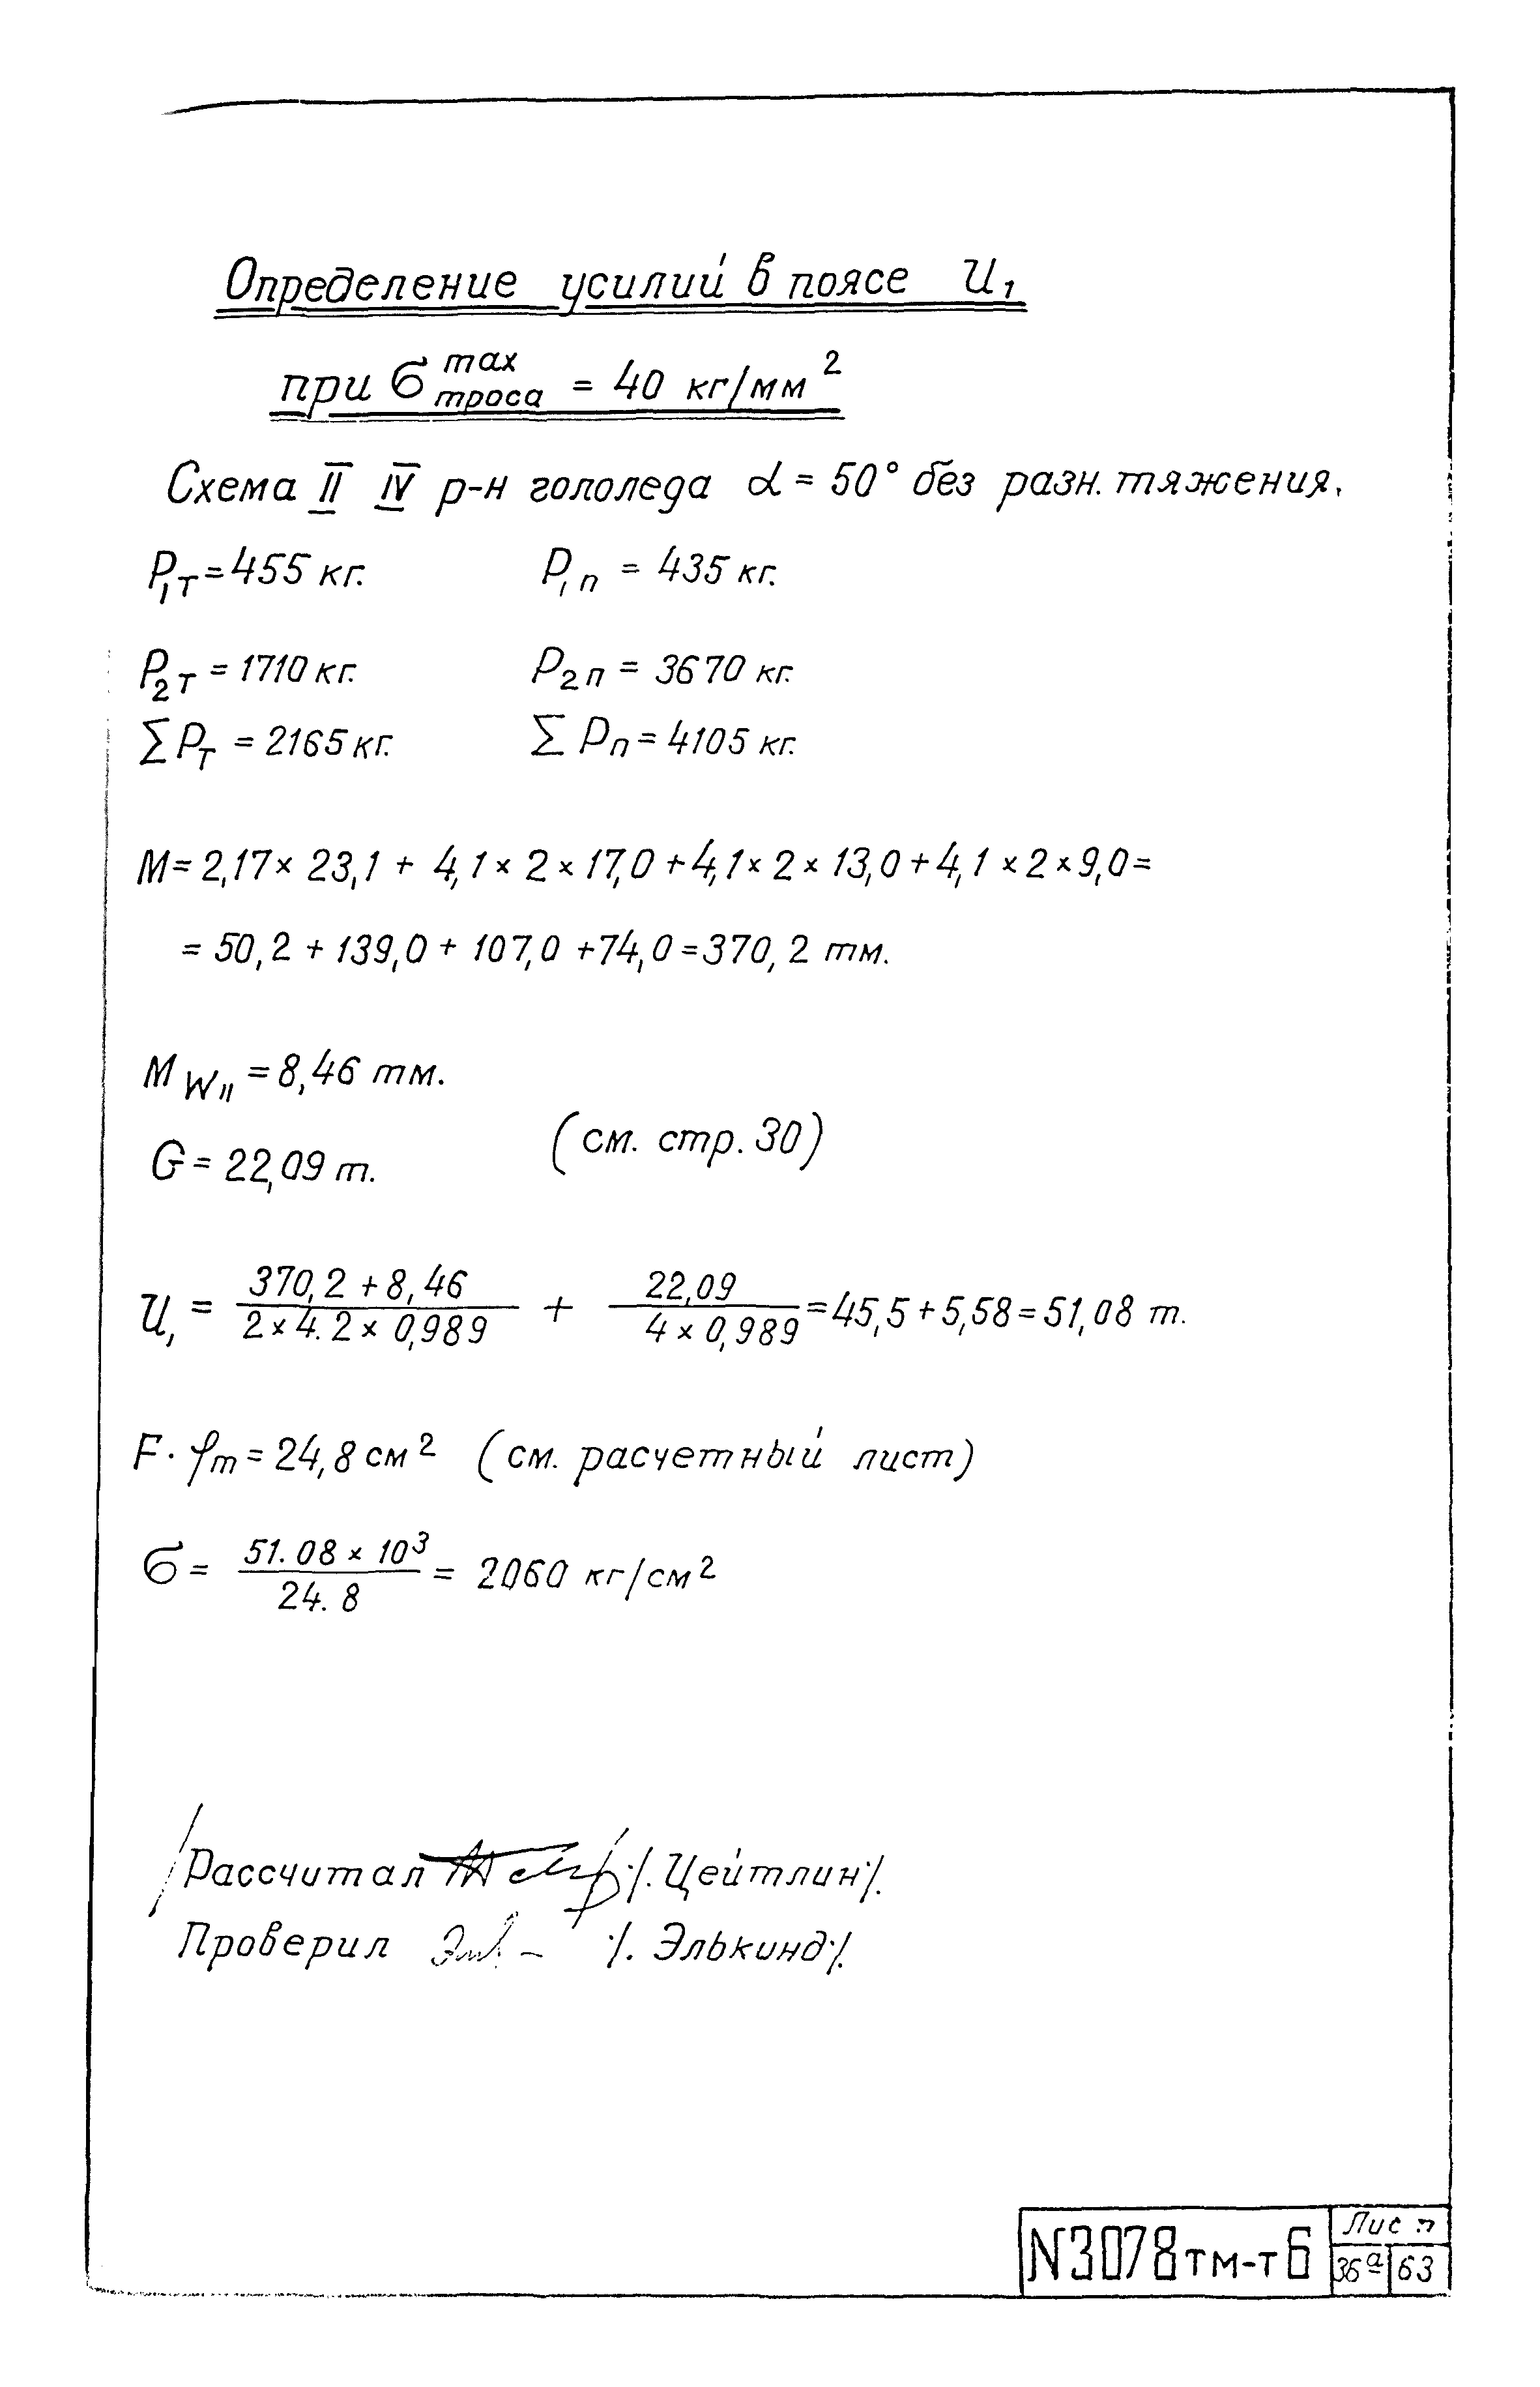 Определение усилий в поясе U₁
при σ max троса = 40 кг/мм²
Схема II IV р-н гололеда α = 50° без разн. тяжения.
P₁т = 455 кг. P₁п = 435 кг.
P₂т = 1710 кг. P₂п = 3670 кг.
∑Pт = 2165 кг. ∑Pп = 4105 кг.
M = 2,17 × 23,1 + 4,1 × 2 × 17,0 + 4,1 × 2 × 13,0 + 4,1 × 2 × 9,0 =
= 50,2 + 139,0 + 107,0 + 74,0 = 370,2 тм.
M WII = 8,46 тм.
(см. стр. 30)
G = 22,09 т.
U₁ = (370,2 + 8,46) / (2 × 4.2 × 0,989) + 22,09 / (4 × 0,989) = 45,5 + 5,58 = 51,08 т.
F · φm = 24,8 см² (см. расчетный лист)
σ = 51.08 × 10³ / 24.8 = 2060 кг/см²
Рассчитал ·/. Цейтлин ·/.
Проверил ·/. Элькинд ·/.
N3078тм-т6
Лист
36а 63